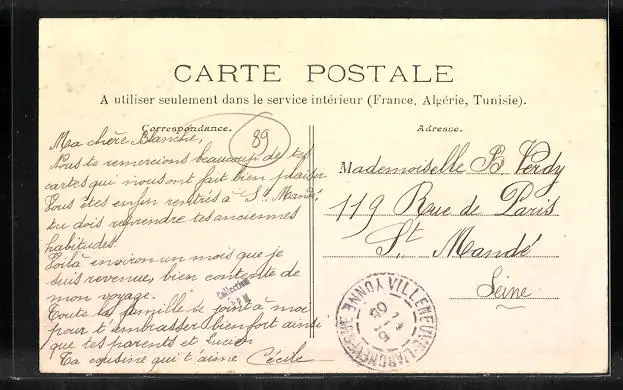 CARTE POSTALE
A utiliser seulement dans le service intérieur (France, Algérie, Tunisie).
Correspondance.
Adresse.
89
Ma chère Blanche,
Nous te remercions beaucoup de tes
cartes qui nous ont fait bien plaisir
Vous êtes enfin rentrés à St Mandé,
tu dois reprendre tes anciennes
habitudes!
Voilà environ un mois que je
suis revenue, bien contente de
mon voyage.
Toute la famille se joint à moi
pour t'embrasser bien fort ainsi
que tes parents et Lucien
Ta cousine qui t'aime Cécile
Mademoiselle B Verdy
119 Rue de Paris
St Mandé
Seine
Collection
VILLENEUVE-L'ARCHEVÊQUE
YONNE